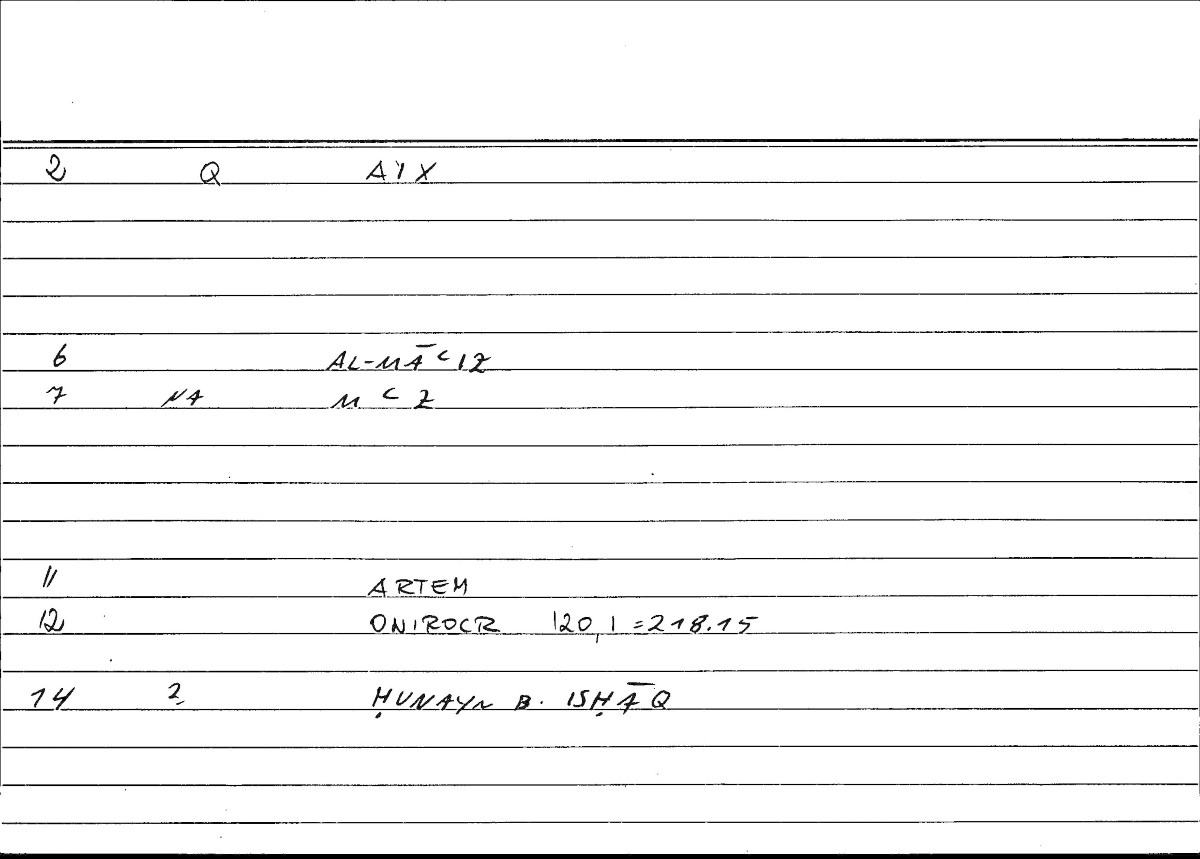 2 Q A'IX
6 AL-MĀ‘IZ
7 NA M ‘ Z
11 ARTEM
12 ONIROCR 120,1=218.15
14 2 ḤUNAYN B. ISḤĀQ